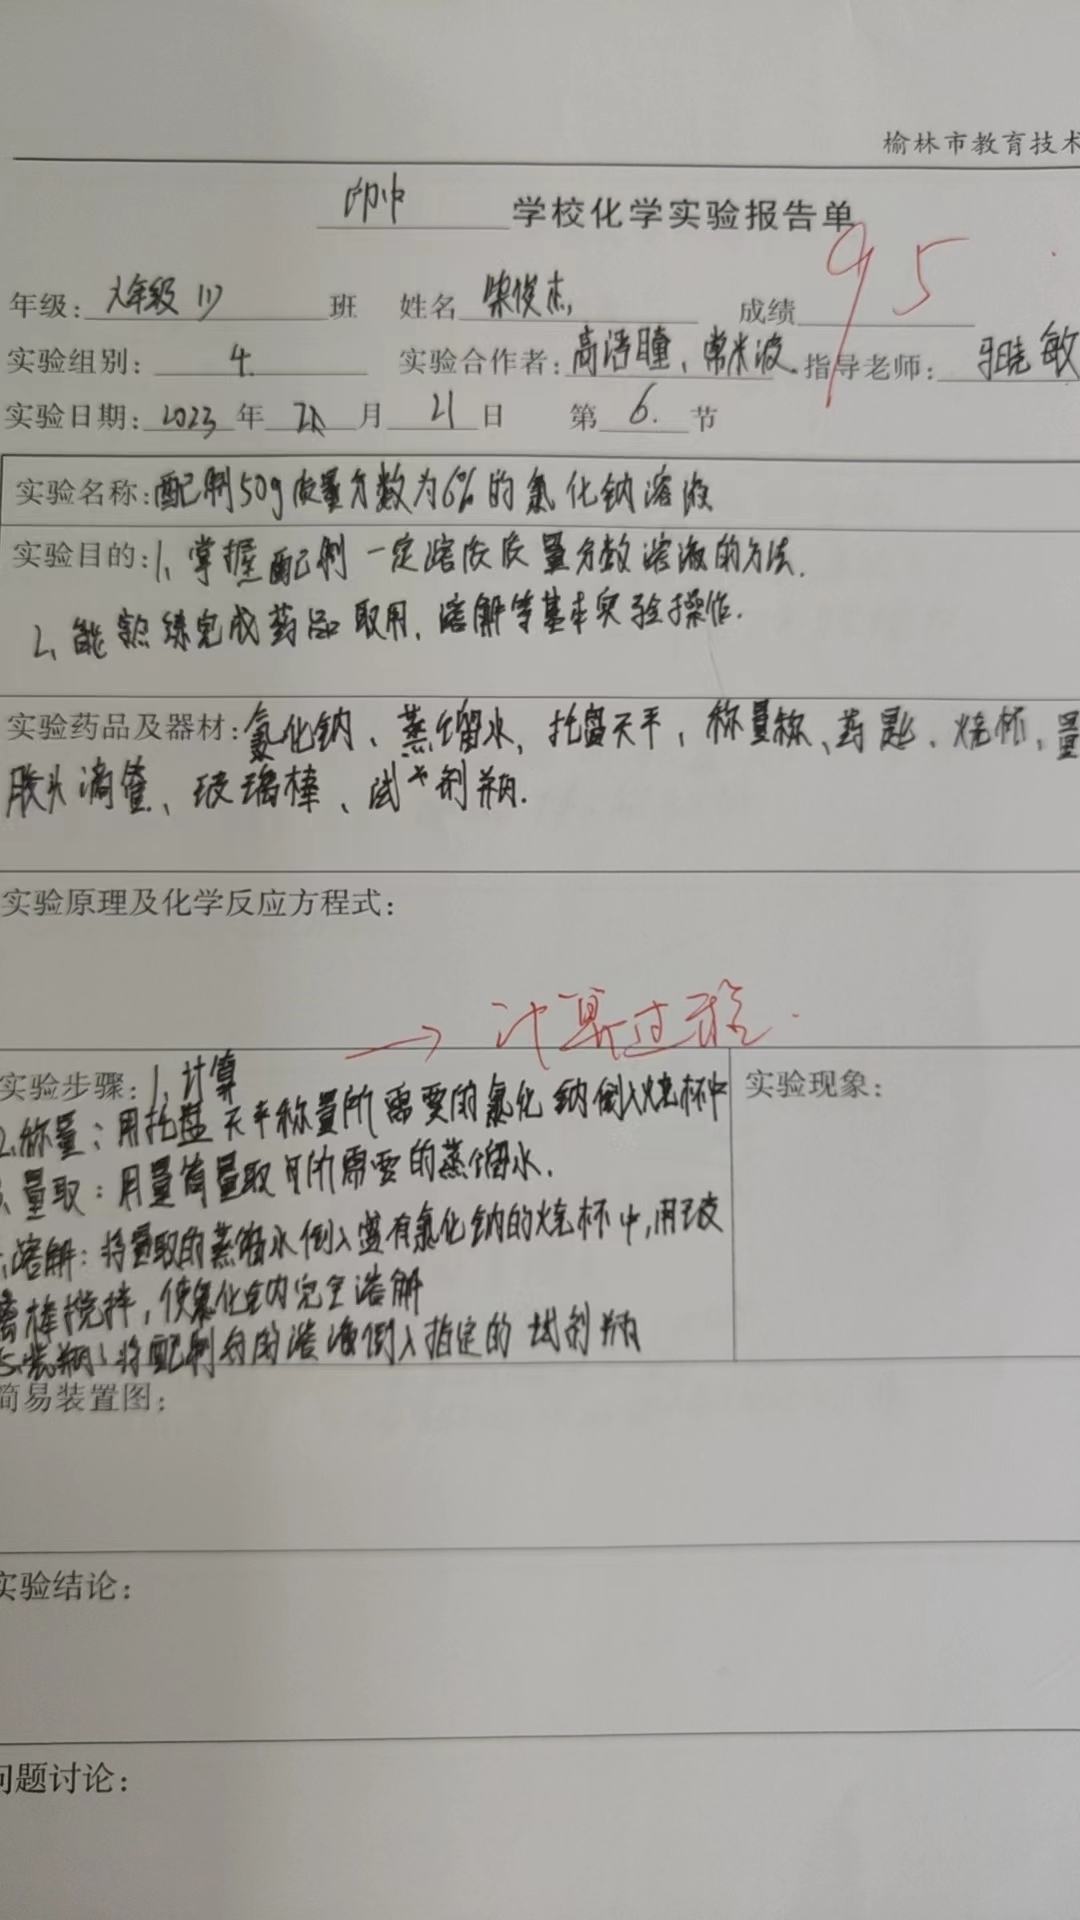 榆林市教育技术
学校化学实验报告单
95
年级: 九年级 (1) 班 姓名 柴俊杰 成绩
实验组别: 4. 实验合作者: 高浩瞳、常米波 指导老师: 晓敏
实验日期: 2023 年 月 21 日 第 6. 节
实验名称: 配制50g质量分数为6%的氯化钠溶液
实验目的: 1、掌握配制一定溶质质量分数溶液的方法.
2、能熟练完成药品取用、溶解等基本实验操作.
实验药品及器材: 氯化钠、蒸馏水、托盘天平、称量称、药匙、烧杯、量
胶头滴管、玻璃棒、试剂瓶.
实验原理及化学反应方程式:
→ 计算过程.
实验步骤: 1、计算 实验现象:
2.称量: 用托盘天平称量所需要的氯化钠倒入烧杯中
量取: 用量筒量取所需要的蒸馏水.
溶解: 将量取的蒸馏水倒入盛有氯化钠的烧杯中,用玻
璃棒搅拌,使氯化钠完全溶解
5.装瓶: 将配制好的溶液倒入指定的试剂瓶
简易装置图:
实验结论:
问题讨论: